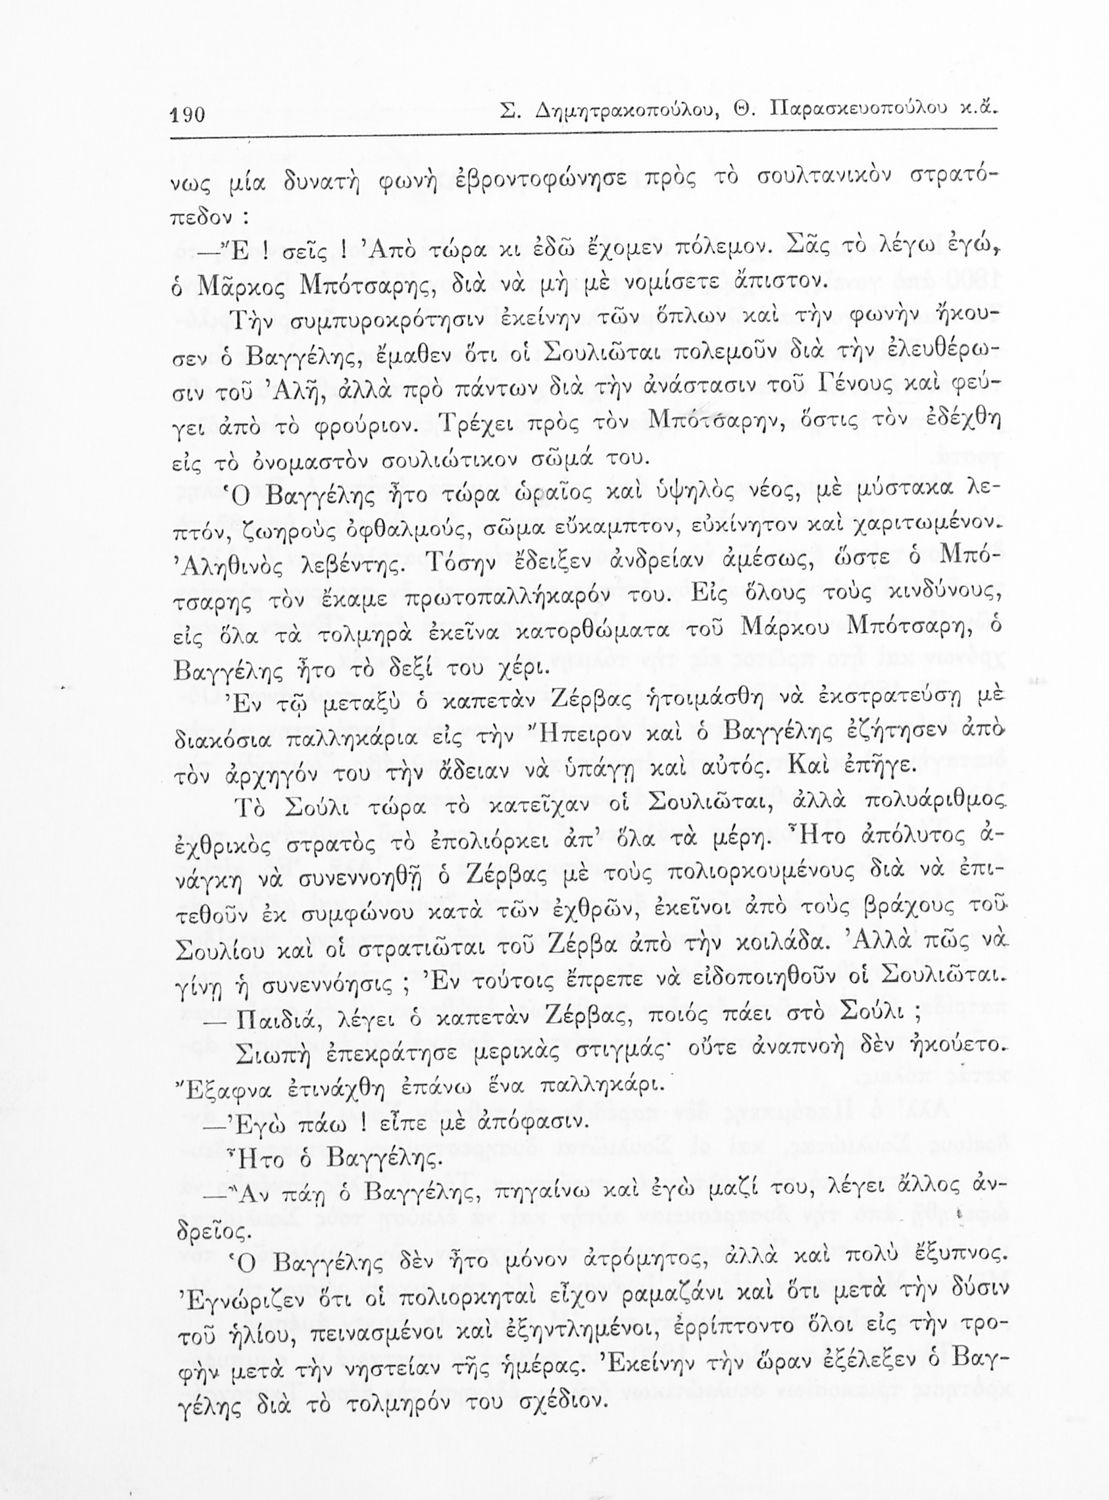 190
Σ. Δημητρακοπούλου, Θ. Παρασκευοπούλου κ.ἄ.
νως μία δυνατὴ φωνὴ ἐβροντοφώνησε πρὸς τὸ σουλτανικὸν στρατό-
πεδον :
—Ἔ ! σεῖς ! Ἀπὸ τώρα κι ἐδῶ ἔχομεν πόλεμον. Σᾶς τὸ λέγω ἐγώ,
ὁ Μᾶρκος Μπότσαρης, διὰ νὰ μὴ μὲ νομίσετε ἄπιστον.
Τὴν συμπυροκρότησιν ἐκείνην τῶν ὅπλων καὶ τὴν φωνὴν ἤκου-
σεν ὁ Βαγγέλης, ἔμαθεν ὅτι οἱ Σουλιῶται πολεμοῦν διὰ τὴν ἐλευθέρω-
σιν τοῦ Ἀλῆ, ἀλλὰ πρὸ πάντων διὰ τὴν ἀνάστασιν τοῦ Γένους καὶ φεύ-
γει ἀπὸ τὸ φρούριον. Τρέχει πρὸς τὸν Μπότσαρην, ὅστις τὸν ἐδέχθη
εἰς τὸ ὀνομαστὸν σουλιώτικον σῶμά του.
Ὁ Βαγγέλης ἦτο τώρα ὡραῖος καὶ ὑψηλὸς νέος, μὲ μύστακα λε-
πτόν, ζωηροὺς ὀφθαλμούς, σῶμα εὔκαμπτον, εὐκίνητον καὶ χαριτωμένον.
Ἀληθινὸς λεβέντης. Τόσην ἔδειξεν ἀνδρείαν ἀμέσως, ὥστε ὁ Μπό-
τσαρης τὸν ἔκαμε πρωτοπαλλήκαρόν του. Εἰς ὅλους τοὺς κινδύνους,
εἰς ὅλα τὰ τολμηρὰ ἐκεῖνα κατορθώματα τοῦ Μάρκου Μπότσαρη, ὁ
Βαγγέλης ἦτο τὸ δεξί του χέρι.
Ἐν τῷ μεταξὺ ὁ καπετὰν Ζέρβας ἡτοιμάσθη νὰ ἐκστρατεύσῃ μὲ
διακόσια παλληκάρια εἰς τὴν Ἤπειρον καὶ ὁ Βαγγέλης ἐζήτησεν ἀπὸ
τὸν ἀρχηγόν του τὴν ἄδειαν νὰ ὑπάγῃ καὶ αὐτός. Καὶ ἐπῆγε.
Τὸ Σούλι τώρα τὸ κατεῖχαν οἱ Σουλιῶται, ἀλλὰ πολυάριθμος
ἐχθρικὸς στρατὸς τὸ ἐπολιόρκει ἀπ’ ὅλα τὰ μέρη. Ἦτο ἀπόλυτος ἀ-
νάγκη νὰ συνεννοηθῇ ὁ Ζέρβας μὲ τοὺς πολιορκουμένους διὰ νὰ ἐπι-
τεθοῦν ἐκ συμφώνου κατὰ τῶν ἐχθρῶν, ἐκεῖνοι ἀπὸ τοὺς βράχους τοῦ
Σουλίου καὶ οἱ στρατιῶται τοῦ Ζέρβα ἀπὸ τὴν κοιλάδα. Ἀλλὰ πῶς νὰ
γίνῃ ἡ συνεννόησις ; Ἐν τούτοις ἔπρεπε νὰ εἰδοποιηθοῦν οἱ Σουλιῶται.
— Παιδιά, λέγει ὁ καπετὰν Ζέρβας, ποιός πάει στὸ Σούλι ;
Σιωπὴ ἐπεκράτησε μερικὰς στιγμάς· οὔτε ἀναπνοὴ δὲν ἠκούετο.
Ἔξαφνα ἐτινάχθη ἐπάνω ἕνα παλληκάρι.
—Ἐγὼ πάω ! εἶπε μὲ ἀπόφασιν.
Ἦτο ὁ Βαγγέλης.
—Ἂν πάῃ ὁ Βαγγέλης, πηγαίνω καὶ ἐγὼ μαζί του, λέγει ἄλλος ἀν-
δρεῖος.
Ὁ Βαγγέλης δὲν ἦτο μόνον ἀτρόμητος, ἀλλὰ καὶ πολὺ ἔξυπνος.
Ἐγνώριζεν ὅτι οἱ πολιορκηταὶ εἶχον ραμαζάνι καὶ ὅτι μετὰ τὴν δύσιν
τοῦ ἡλίου, πεινασμένοι καὶ ἐξηντλημένοι, ἐρρίπτοντο ὅλοι εἰς τὴν τρο-
φὴν μετὰ τὴν νηστείαν τῆς ἡμέρας. Ἐκείνην τὴν ὥραν ἐξέλεξεν ὁ Βαγ-
γέλης διὰ τὸ τολμηρόν του σχέδιον.